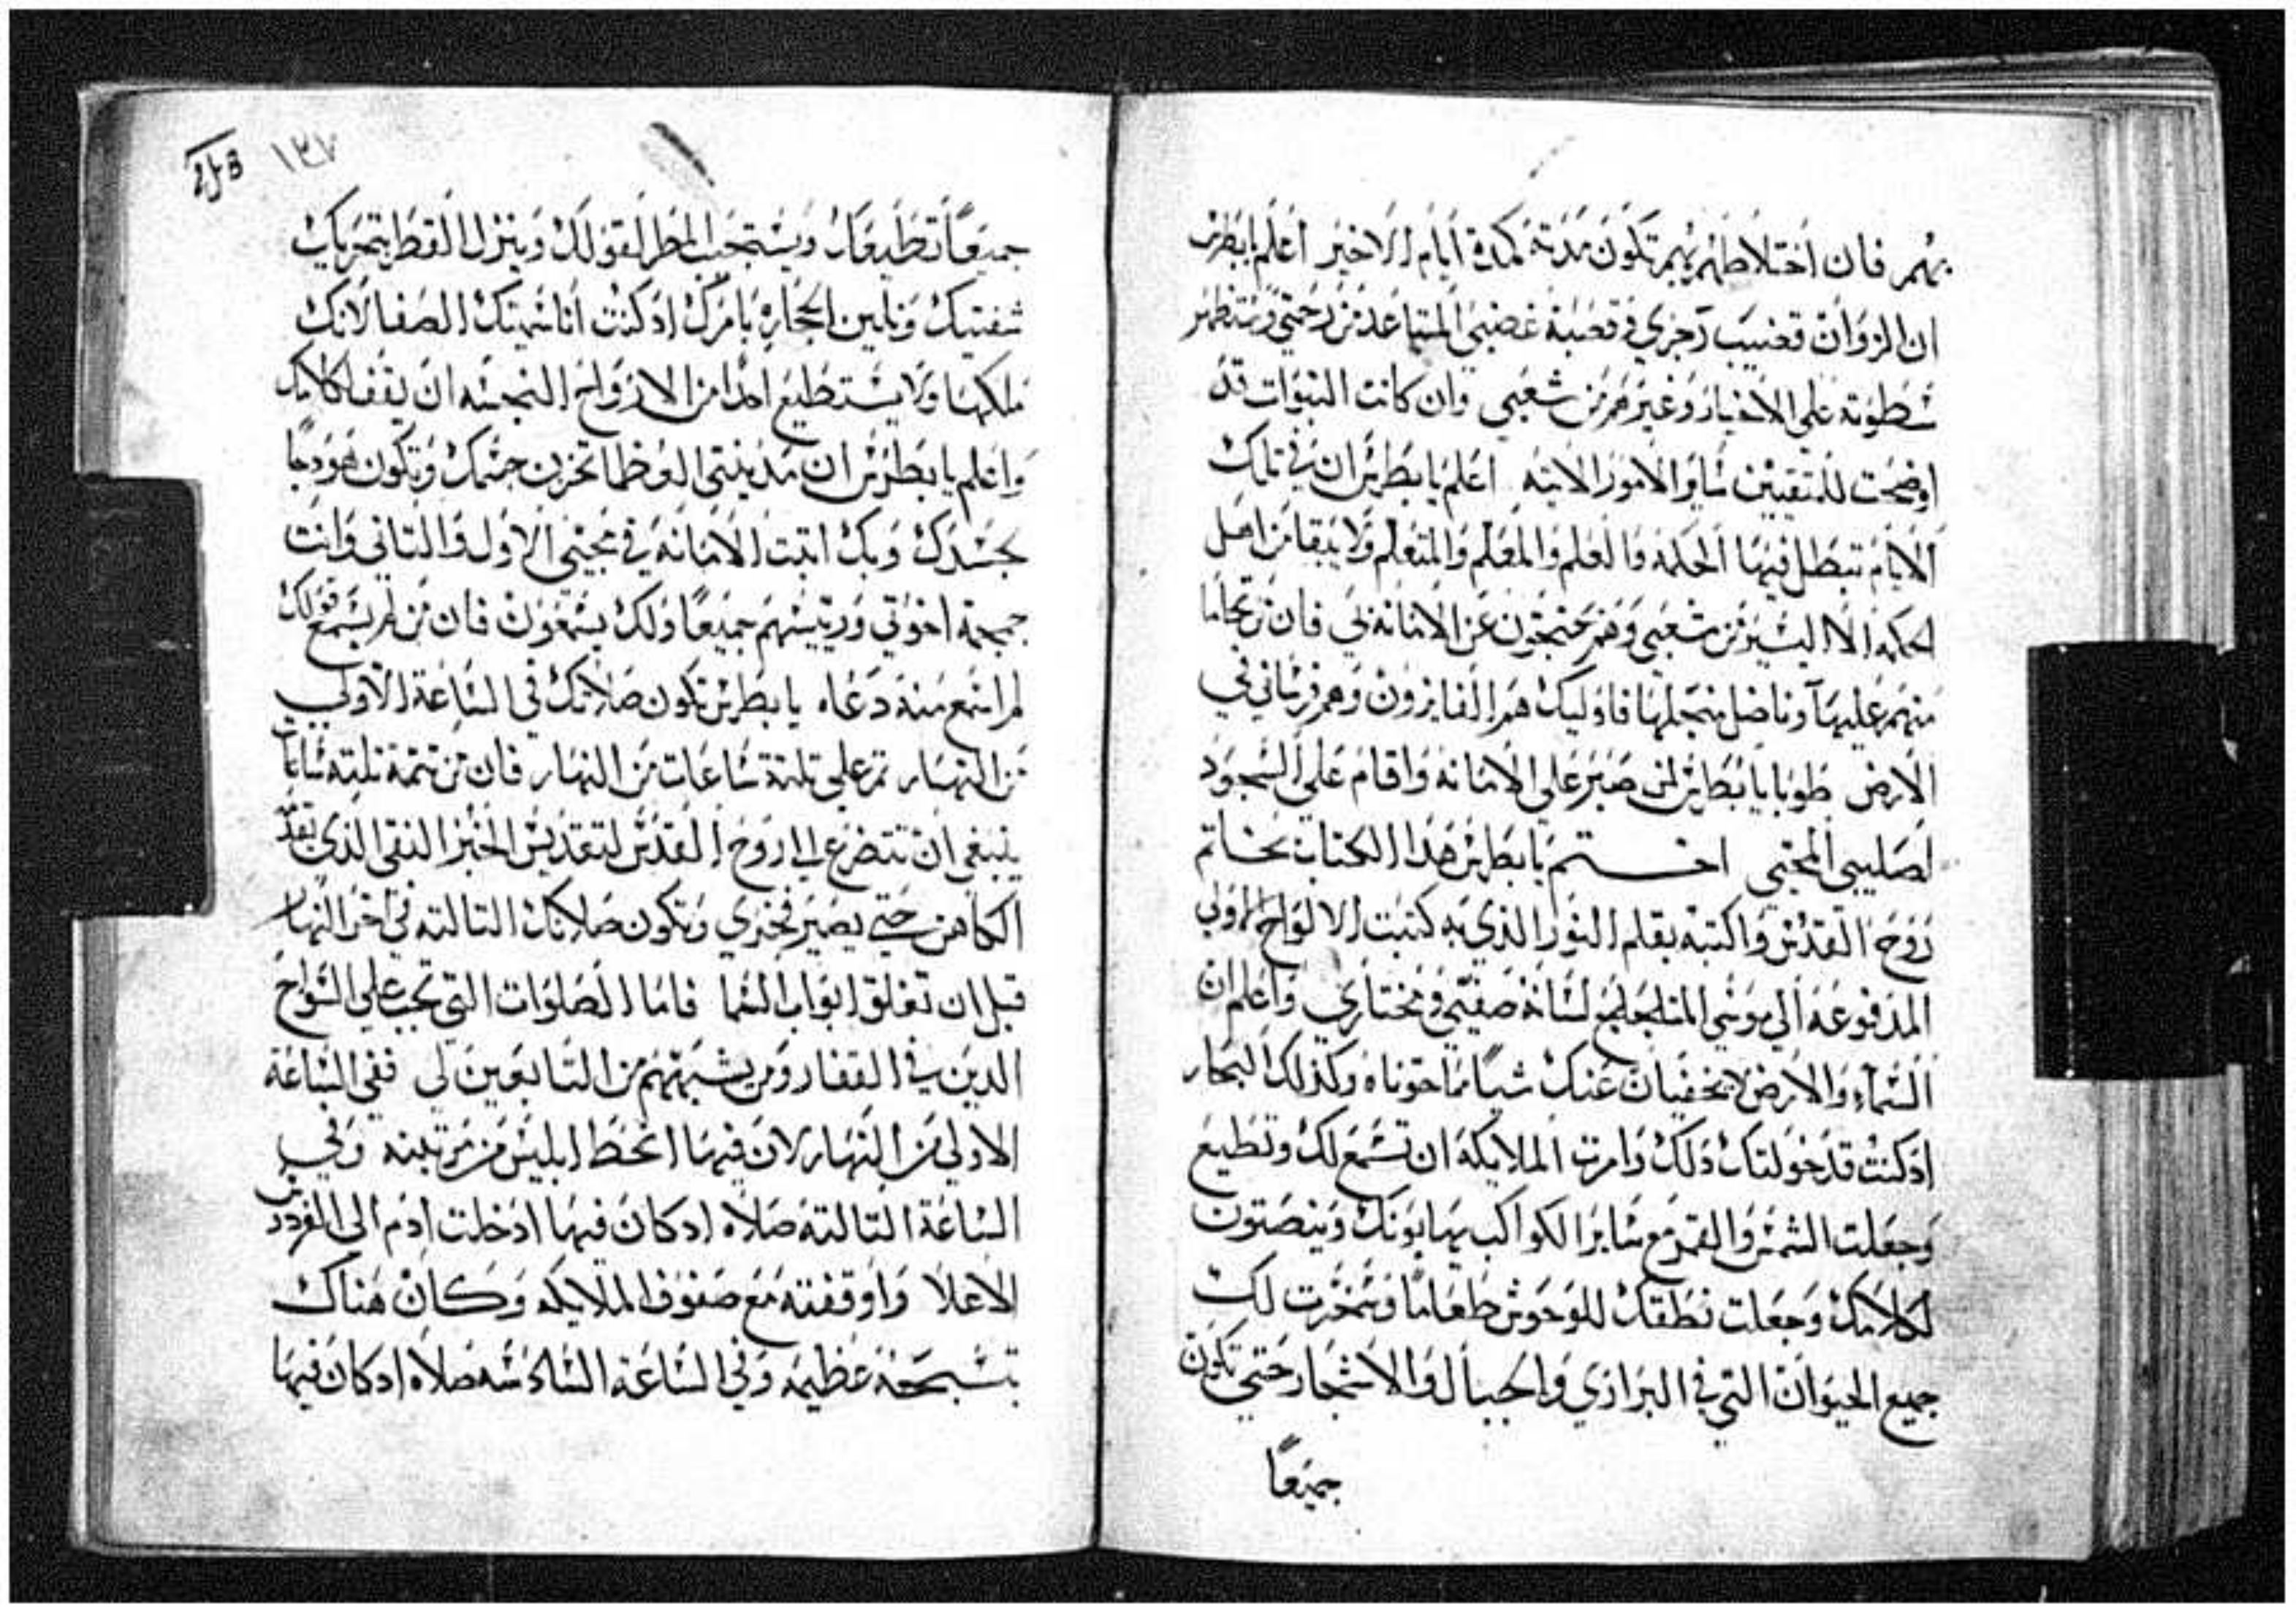 بهم فان اختلاطهم بهم تكون مدته كمدة ايام الاخير اعلم يابطرس
ان الزوان قضيب رجزي في قصبة غضبي المتباعد من رحمتي وستظهر
سطوته علي الاخيار وغيرهم من شعبي وان كانت النبوات قد
اوضحت للمتقيين ساير الامور الاتيه اعلم يا بطرس ان في تلك
الايام تبطل فيها الحكمه والعلم والمعلم والمتعلم ولا يبقا من اهل
الحكمه الا اليسير من شعبي وهم يحتجون عن الامانه بي فان من تحاما
منهم عليها وناضل من اجلها فاوليك هم الفايزون وهم فرساني في
الارض طوبا يا بطرس لمن صبر علي الامانه واقام علي السجود
لصليبي المحيي اختم يا بطرس هذا الكتاب بخاتم
روح القدس واكتبه بقلم النور الذي به كتبت الالواح الاولي
المدفوعه الي موسي المتلجلج لسانه صفيي ومختاري واعلم ان
السماء والارض لا يخفيان عنك شياً مما حوتاه وكذلك البحار
اذ كنت قد خولتك ذلك وامرت الملايكه ان تسمع لك وتطيع
وجعلت الشمس والقمر مع ساير الكواكب يهابونك وينصتون
لكلامك وجعلت نطقك للوحوش طعاماً وسخرت لك
جميع الحيوان التي في البراري والجبال والاشجار حتي تكون
جميعاً
١٣٧
جميعاً تطيعك ويستجيب المطر لقولك وينزل القطر بتحريك
شفتيك وتلين الحجاره بامرك اذ كنت انا سميتك الصفا لانك
ملكها ولا يستطيع احدا من الارواح النجسه ان يقف لكلامك
واعلم يا بطرس ان مدينتي العظما تحرين جسمك وتكون هودجاً
لجسدك وبك اتبت الامانه في مجيي الاول والتاني وانت
جمجمة اخوتي وريسهم جميعاً ولك يسمعون فان من لم يسمع قولك
لم اسمع منه دعاه يا بطرس تكون صلاتك في الساعة الاولي
من النهار تم علي تلتة ساعات من النهار فان من تتمة تلته ساعات
ينبغي ان تتضرع الي روح القدس لتقديس الخبز النقي الذي يقدسه
الكاهن حتي يصير جسدي وتكون صلاتك التالته في اخر النهار
قبل ان تغلق ابواب السما فاما الصلوات التي تجب علي السواح
الدين في القفار ومن يشبههم من التابعين لي ففي الساعة
الاولي من النهار لان فيها انحط ابليس من مرتبته وفي
الساعة التالته صلاه اد كان فيها ادخلت ادم الي الفردوس
الاعلا واوقفته مع صفوف الملايكه وكان هناك
تسبحة عظيمه وفي الساعة السادسه صلاه اد كان فيها